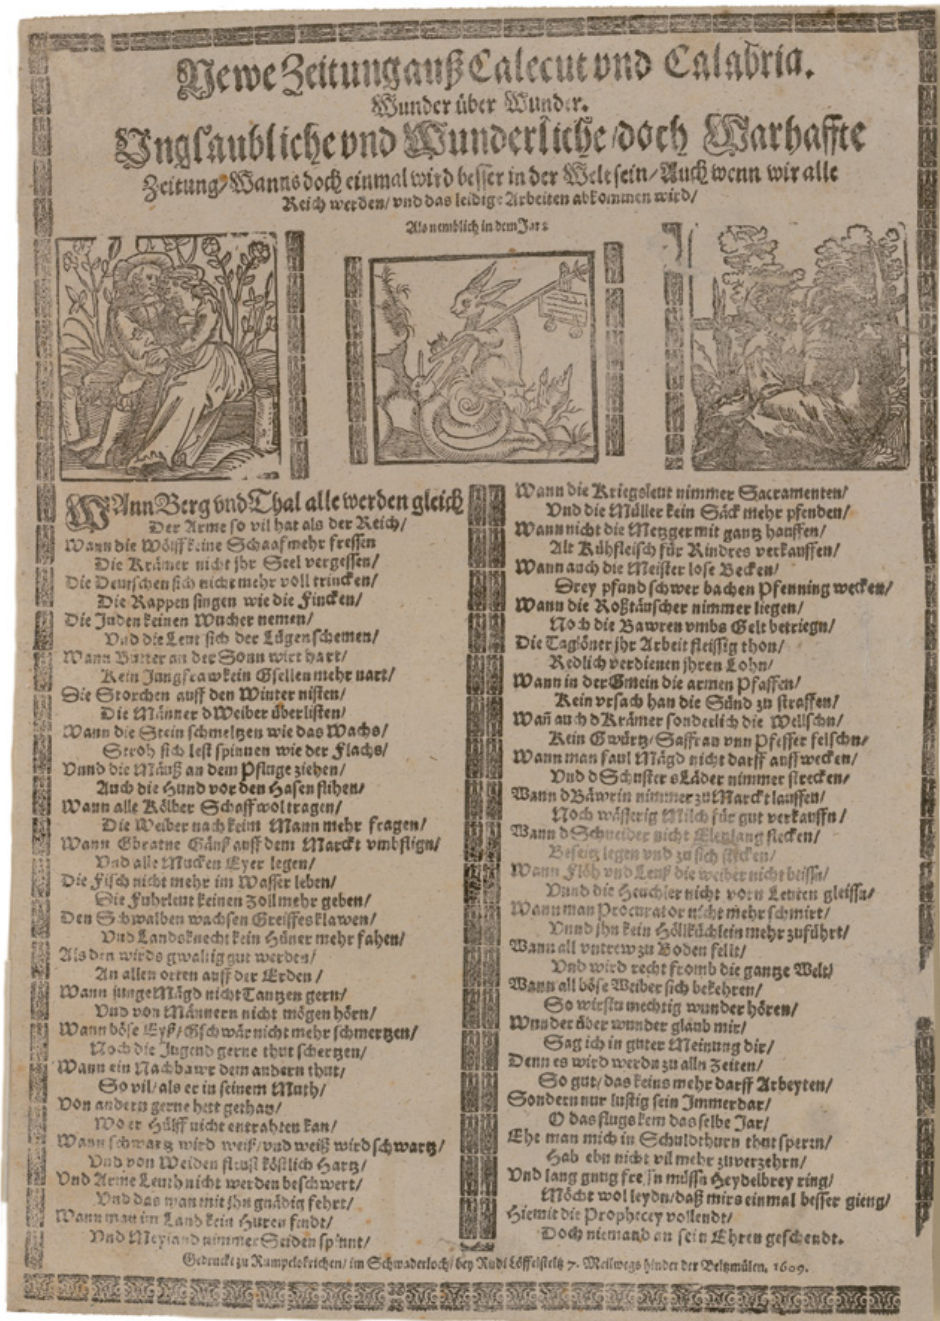 Newe Zeitung auß Calecut vnd Calabria.
Wunder über Wunder.
Vnglaubliche vnd Wunderliche / doch Warhaffte
Zeitung / Wanns doch einmal wird besser in der Welt sein / Auch wenn wir alle
Reich werden / vnd das leidige Arbeiten abkommen wird /
Als nemblich in dem Jar :
WAnn Berg vnd Thal alle werden gleich
Der Arme so vil hat als der Reich /
Wann die Wölff keine Schaaf mehr fressen
Die Krämer nicht jhr Seel vergessen /
Die Deutschen sich nicht mehr voll trincken /
Die Rappen singen wie die Fincken /
Die Juden keinen Wucher nemen /
Vnd die Leut sich der Lügen schemen /
Wann Butter an der Sonn wirt hart /
Kein Jungfraw kein Gsellen mehr nart /
Die Storchen auff den Winter nisten /
Die Männer d Weiber überlisten /
Wann die Stein schmeltzen wie das Wachs /
Stroh sich lest spinnen wie der Flachs /
Vnnd die Mäuß an dem Pfluge ziehen /
Auch die Hund vor den Hasen flihen /
Wann alle Kölber Schaff wol tragen /
Die Weiber nach keim Mann mehr fragen /
Wann Gbratne Gänß auff dem Marckt vmbflign /
Vnd alle Mucken Eyer legen /
Die Fisch nicht mehr im Wasser leben /
Die Fuhrleut keinen Zoll mehr geben /
Den Schwalben wachsen Greiffes klawen /
Vnd Landsknecht kein Hüner mehr fahen /
Als den wirds gwaltig gut werden /
An allen orten auff der Erden /
Wann junge Mägd nicht Tantzen gern /
Vnd von Männern nicht mögen hörn /
Wann böse Eyß / Gschwär nicht mehr schmertzen /
Noch die Jugend gerne thut schertzen /
Wann ein Nachbawr dem andern thut /
So vil / als er in seinem Muth /
Von andern gerne hett gethan /
Wo er Hülff nicht entrahten kan /
Wann schwartz wird weiß / vnd weiß wird schwartz /
Vnd von Weiden fleust köstlich Hartz /
Vnd Arme Leuth nicht werden beschwert /
Vnd das man mit jhn gnädig fehrt /
Wann man im Land kein Huren findt /
Vnd Meyland nimmer Seiden spinnt /
Wann die Kriegsleut nimmer Sacramenten /
Vnd die Müller kein Säck mehr pfenden /
Wann nicht die Metzger mit gantz hauffen /
Alt Kühfleisch für Rindres verkauffen /
Wann auch die Meister lose Becken /
Drey pfund schwer bachen Pfenning wecken /
Wann die Roßtäuscher nimmer liegen /
Noch die Bawren vmbs Gelt betriegn /
Die Taglöner jhr Arbeit fleissig thon /
Redlich verdienen jhren Lohn /
Wann in der Gmein die armen Pfaffen /
Kein vrsach han die Sünd zu straffen /
Wañ auch d Krämer sonderlich die Wellschn /
Kein Gwürtz / Saffran vnn Pfeffer felschn /
Wann man faul Mägd nicht darff auff wecken /
Vnd d Schuster s Läder nimmer strecken /
Wann d Bäwrin nimmer zu Marckt lauffen /
Noch wässerig Milch für gut verkauffn /
Wann d Schneider nicht Elenlang flecken /
Beseitz legen vnd zu sich stecken /
Wann Flöh vnd Leuß die weiber nicht beissn /
Vnnd die Heuchler nicht vorn Leuten gleissn /
Wann man Procurator nicht mehr schmirt /
Vnnd jhn kein Höllküchlein mehr zuführt /
Wann all vntrew zu Boden fellt /
Vnd wird recht fromb die gantze Welt /
Wann all böse Weiber sich bekehren /
So wirstu mechtig wunder hören /
Wunder über wunder glaub mir /
Sag ich in guter Meinung dir /
Denn es wird werdn zu alln Zeiten /
So gut / das keins mehr darff Arbeyten /
Sondern nur lustig sein Immerdar /
O das flugs kem dasselbe Jar /
Ehe man mich in Schuldthurn thut sperrn /
Hab ehn nicht vil mehr zuverzehrn /
Vnd lang gnug müssn Heydelbrey ring /
Möcht wol leydn / daß mirs einmal besser gieng /
Hiemit die Prophecey vollendt /
Doch niemand an sein Ehren geschendt.
Gedruckt zu Rumpelskirchen / im Schwaderloch / bey Rudi Löffelstieltz 7. Meilwegs hinder der Beltzmülen, 1609.